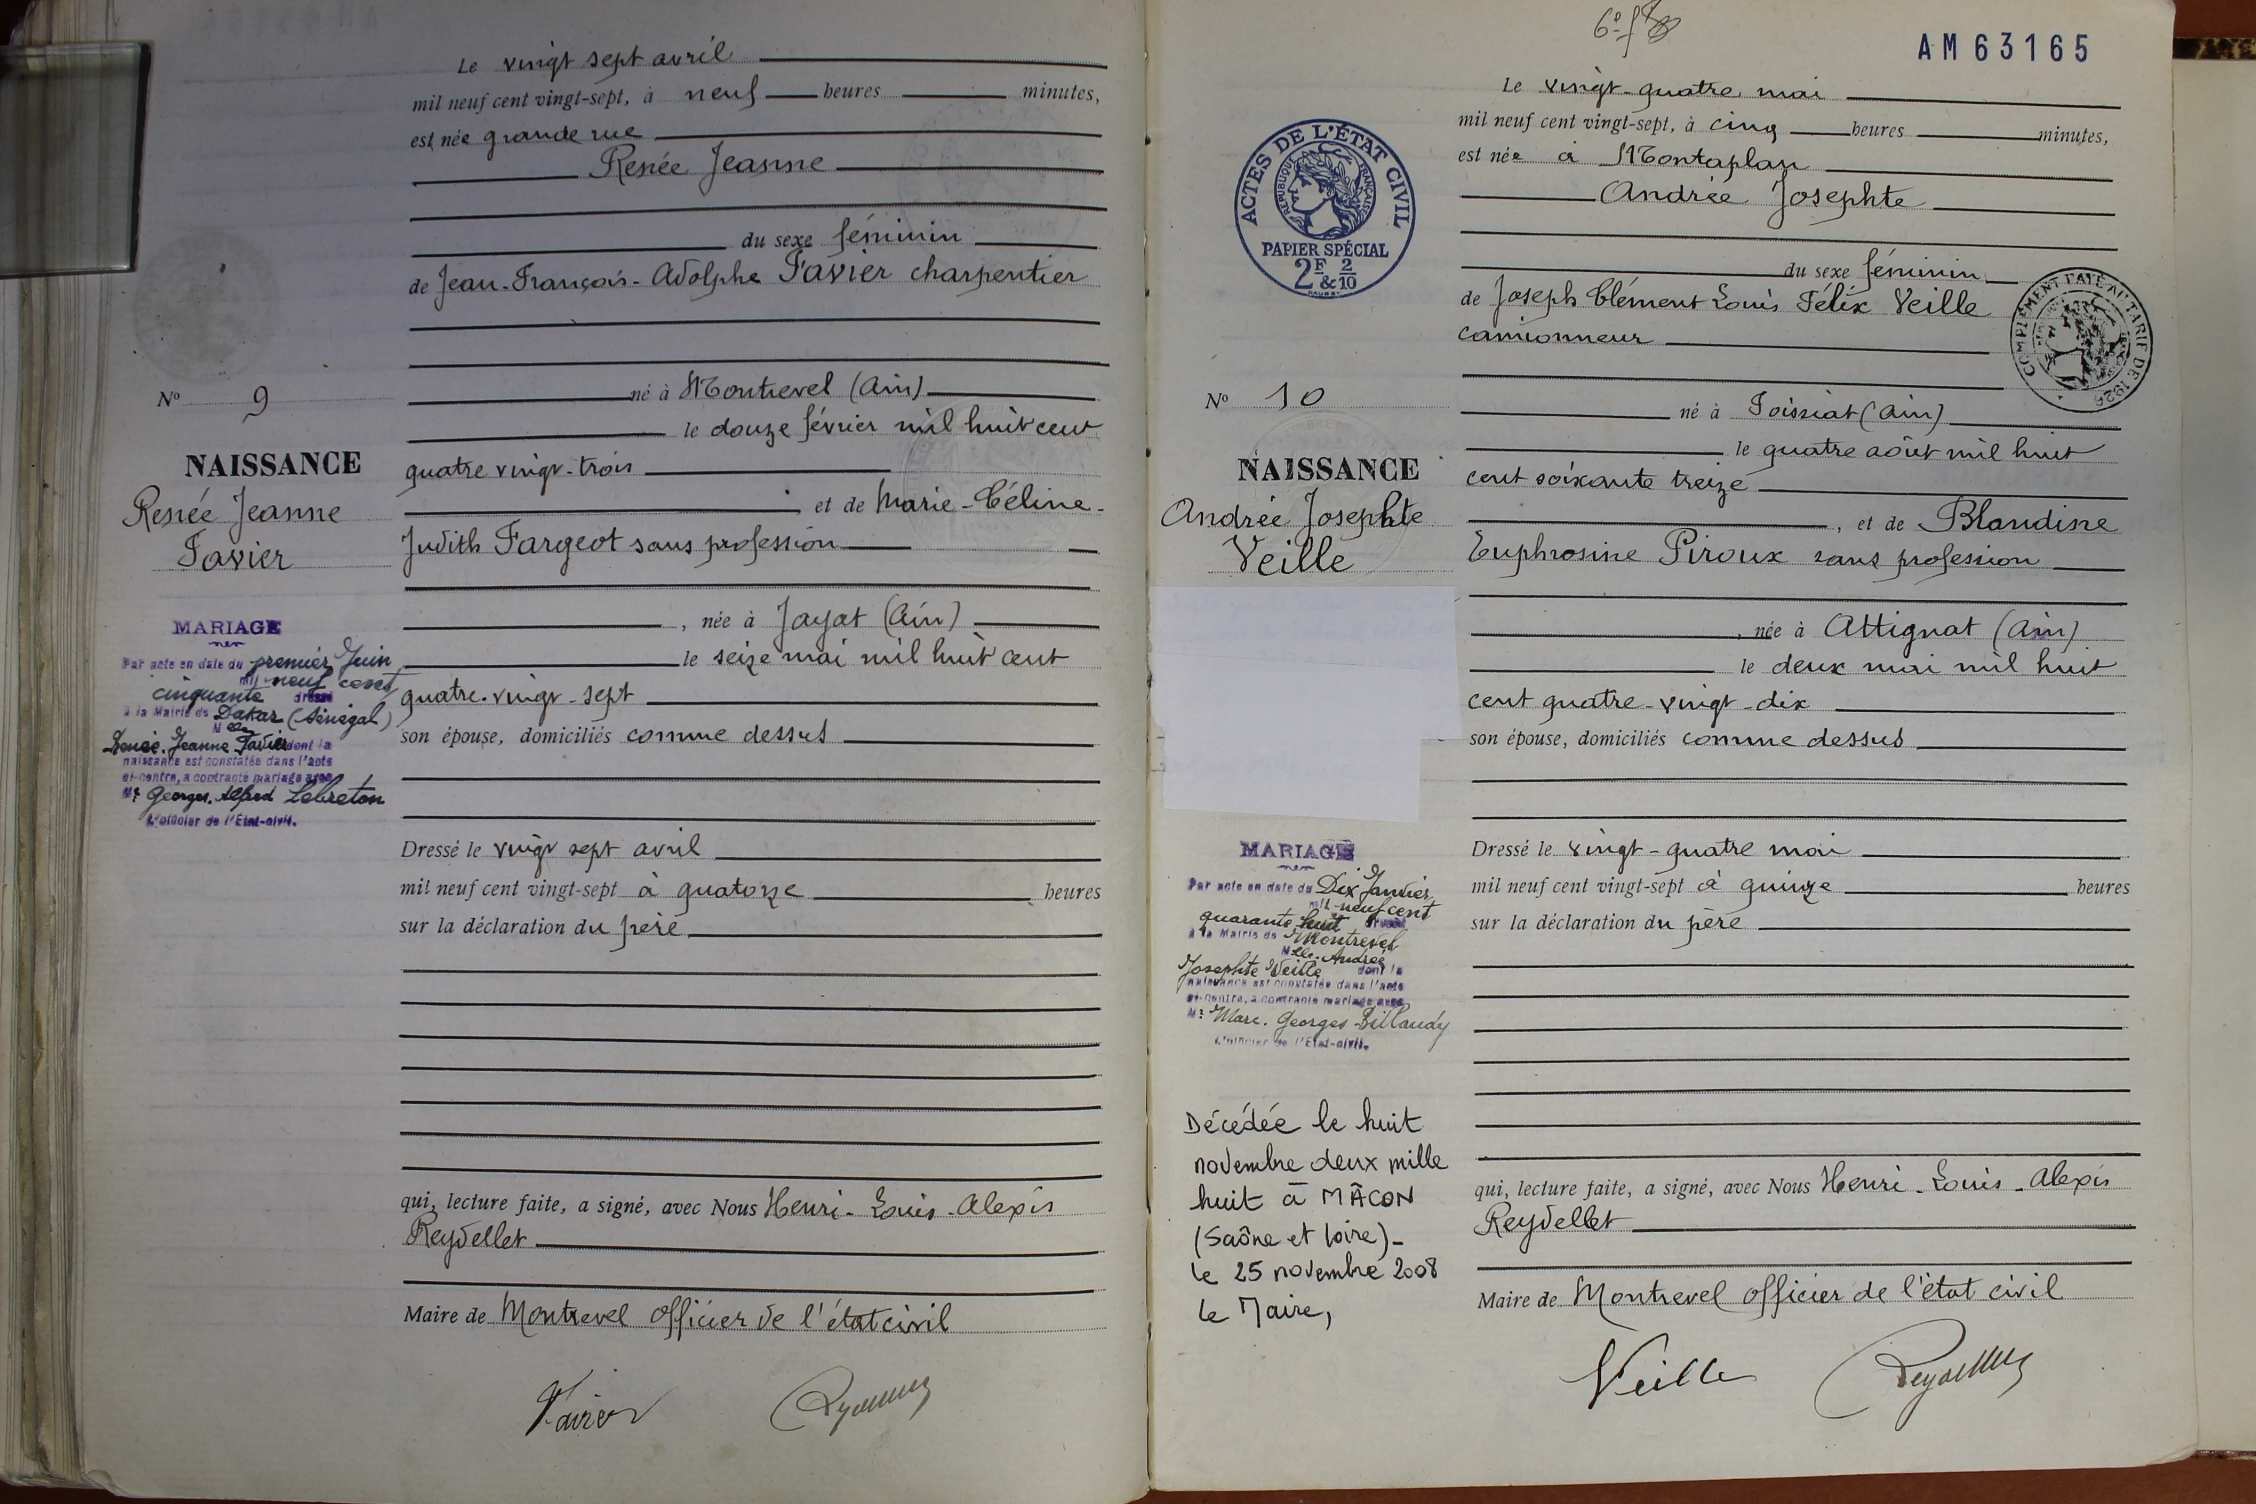 Le vingt sept avril
mil neuf cent vingt-sept, à neuf heures minutes,
est née grande rue
Renée Jeanne
du sexe féminin
de Jean-François-Adolphe Favier charpentier
né à Montrevel (Ain)
le douze février mil huit cent
quatre vingt-trois
et de Marie-Céline-
Judith Fargeot sans profession
, née à Jayat (Ain)
le seize mai mil huit cent
quatre-vingt-sept
son épouse, domiciliés comme dessus
Dressé le vingt sept avril
mil neuf cent vingt-sept à quatorze heures
sur la déclaration du père
qui, lecture faite, a signé, avec Nous Henri-Louis-Alexis
Reydellet
Maire de Montrevel officier de l'état civil
Favier
No 9
NAISSANCE
Renée Jeanne
Favier
MARIAGE
Par acte en date du premier Juin
mil-neuf cent
cinquante dressé
à la Mairie de Dakar (Sénégal)
Mlle
Renée. Jeanne Favier dont la
naissance est constatée dans l'acte
ci-contre, a contracté mariage avec
Mr Georges. Alfred Lebreton
L'officier de l'Etat-civil.
AM 63165
ACTES DE L'ÉTAT CIVIL
RÉPUBLIQUE FRANÇAISE
PAPIER SPÉCIAL
2F & 2/10
Le vingt-quatre mai
mil neuf cent vingt-sept, à cinq heures minutes,
est née à Montaplan
Andrée Josephte
du sexe féminin
de Joseph Clément Louis Félix Veille
camionneur
COMPLÉMENT PAYÉ AU TARIF DE 1926
né à Foissiat (Ain)
le quatre août mil huit
cent soixante treize
, et de Blandine
Euphrosine Piroux sans profession
, née à Attignat (Ain)
le deux mai mil huit
cent quatre-vingt-dix
son épouse, domiciliés comme dessus
Dressé le vingt-quatre mai
mil neuf cent vingt-sept à quinze heures
sur la déclaration du père
qui, lecture faite, a signé, avec Nous Henri-Louis-Alexis
Reydellet
Maire de Montrevel officier de l'état civil
Veille
No 10
NAISSANCE
Andrée Josephte
Veille
MARIAGE
Par acte en date du Dix Janvier
mil-neuf cent
quarante huit dressé
à la Mairie de Montrevel
Mlle. Andrée
Josephte Veille dont la
naissance est constatée dans l'acte
ci-contre, a contracté mariage avec
Mr Marc. Georges Billaudy
L'officier de l'Etat-civil.
Décédée le huit
novembre deux mille
huit à MÂCON
(Saône et Loire)-
le 25 novembre 2008
Le Maire,